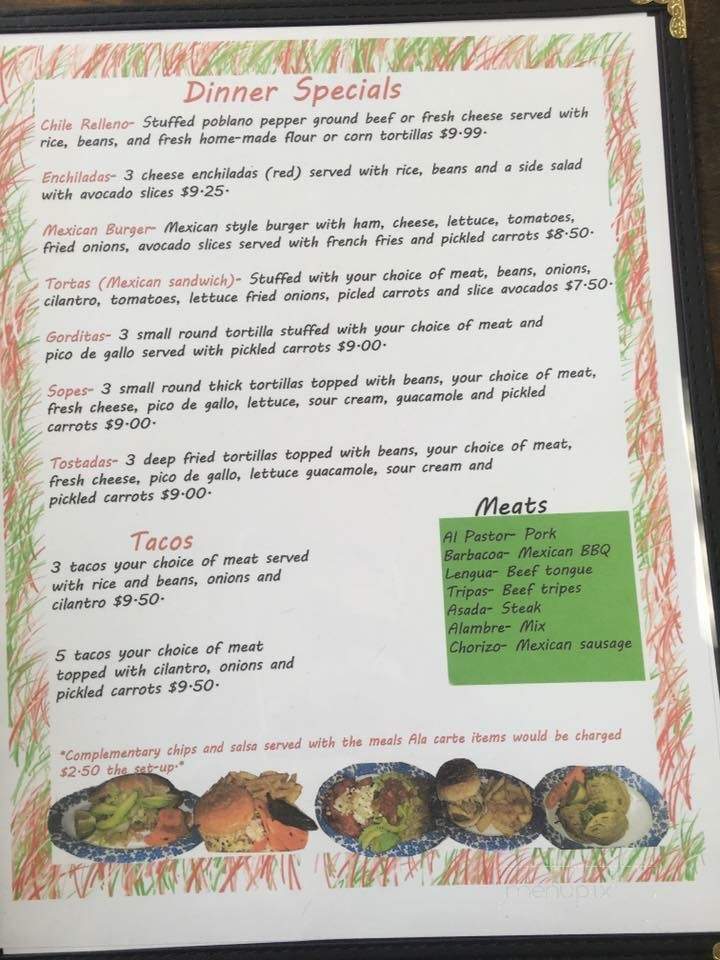 Dinner Specials
Chile Relleno- Stuffed poblano pepper ground beef or fresh cheese served with
rice, beans, and fresh home-made flour or corn tortillas $9.99.
Enchiladas- 3 cheese enchiladas (red) served with rice, beans and a side salad
with avocado slices $9.25.
Mexican Burger- Mexican style burger with ham, cheese, lettuce, tomatoes,
fried onions, avocado slices served with french fries and pickled carrots $8.50.
Tortas (Mexican sandwich)- Stuffed with your choice of meat, beans, onions,
cilantro, tomatoes, lettuce fried onions, picled carrots and slice avocados $7.50.
Gorditas- 3 small round tortilla stuffed with your choice of meat and
pico de gallo served with pickled carrots $9.00.
Sopes- 3 small round thick tortillas topped with beans, your choice of meat,
fresh cheese, pico de gallo, lettuce, sour cream, guacamole and pickled
carrots $9.00.
Tostadas- 3 deep fried tortillas topped with beans, your choice of meat,
fresh cheese, pico de gallo, lettuce guacamole, sour cream and
pickled carrots $9.00.
Tacos
3 tacos your choice of meat served
with rice and beans, onions and
cilantro $9.50.
5 tacos your choice of meat
topped with cilantro, onions and
pickled carrots $9.50.
Meats
Al Pastor- Pork
Barbacoa- Mexican BBQ
Lengua- Beef tongue
Tripas- Beef tripes
Asada- Steak
Alambre- Mix
Chorizo- Mexican sausage
*Complementary chips and salsa served with the meals Ala carte items would be charged
$2.50 the set-up.*
menupix